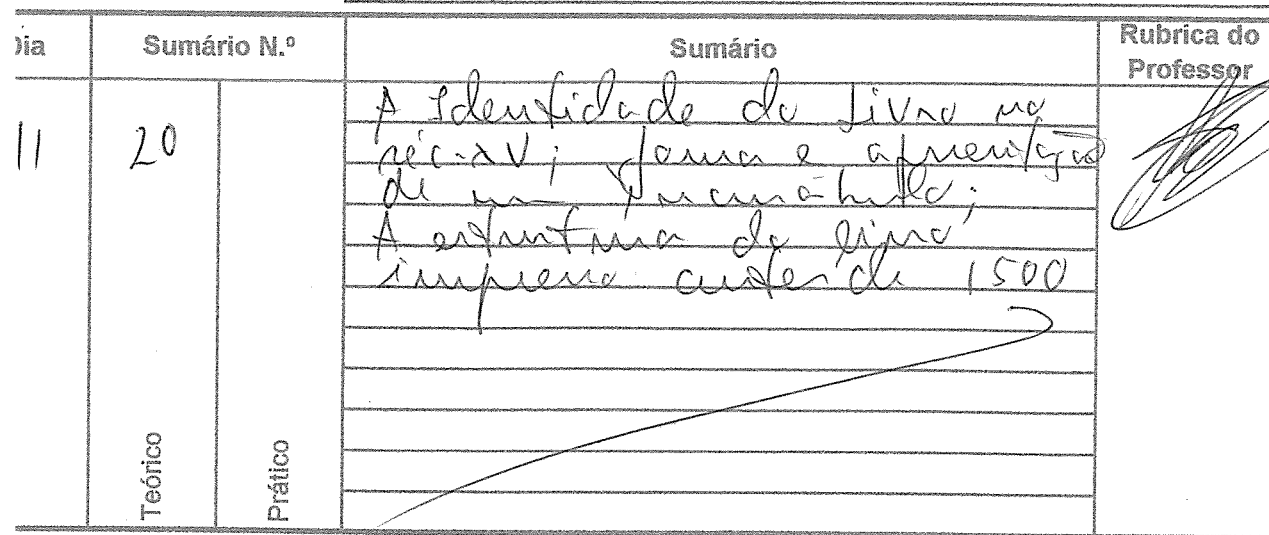 Dia Sumário N.º Sumário Rubrica do Professor
11 20
A Identidade do Livro no
séc. XV; forma e apresentação
de um Incunábulo;
A estrutura do livro
impresso antes de 1500
Teórico Prático